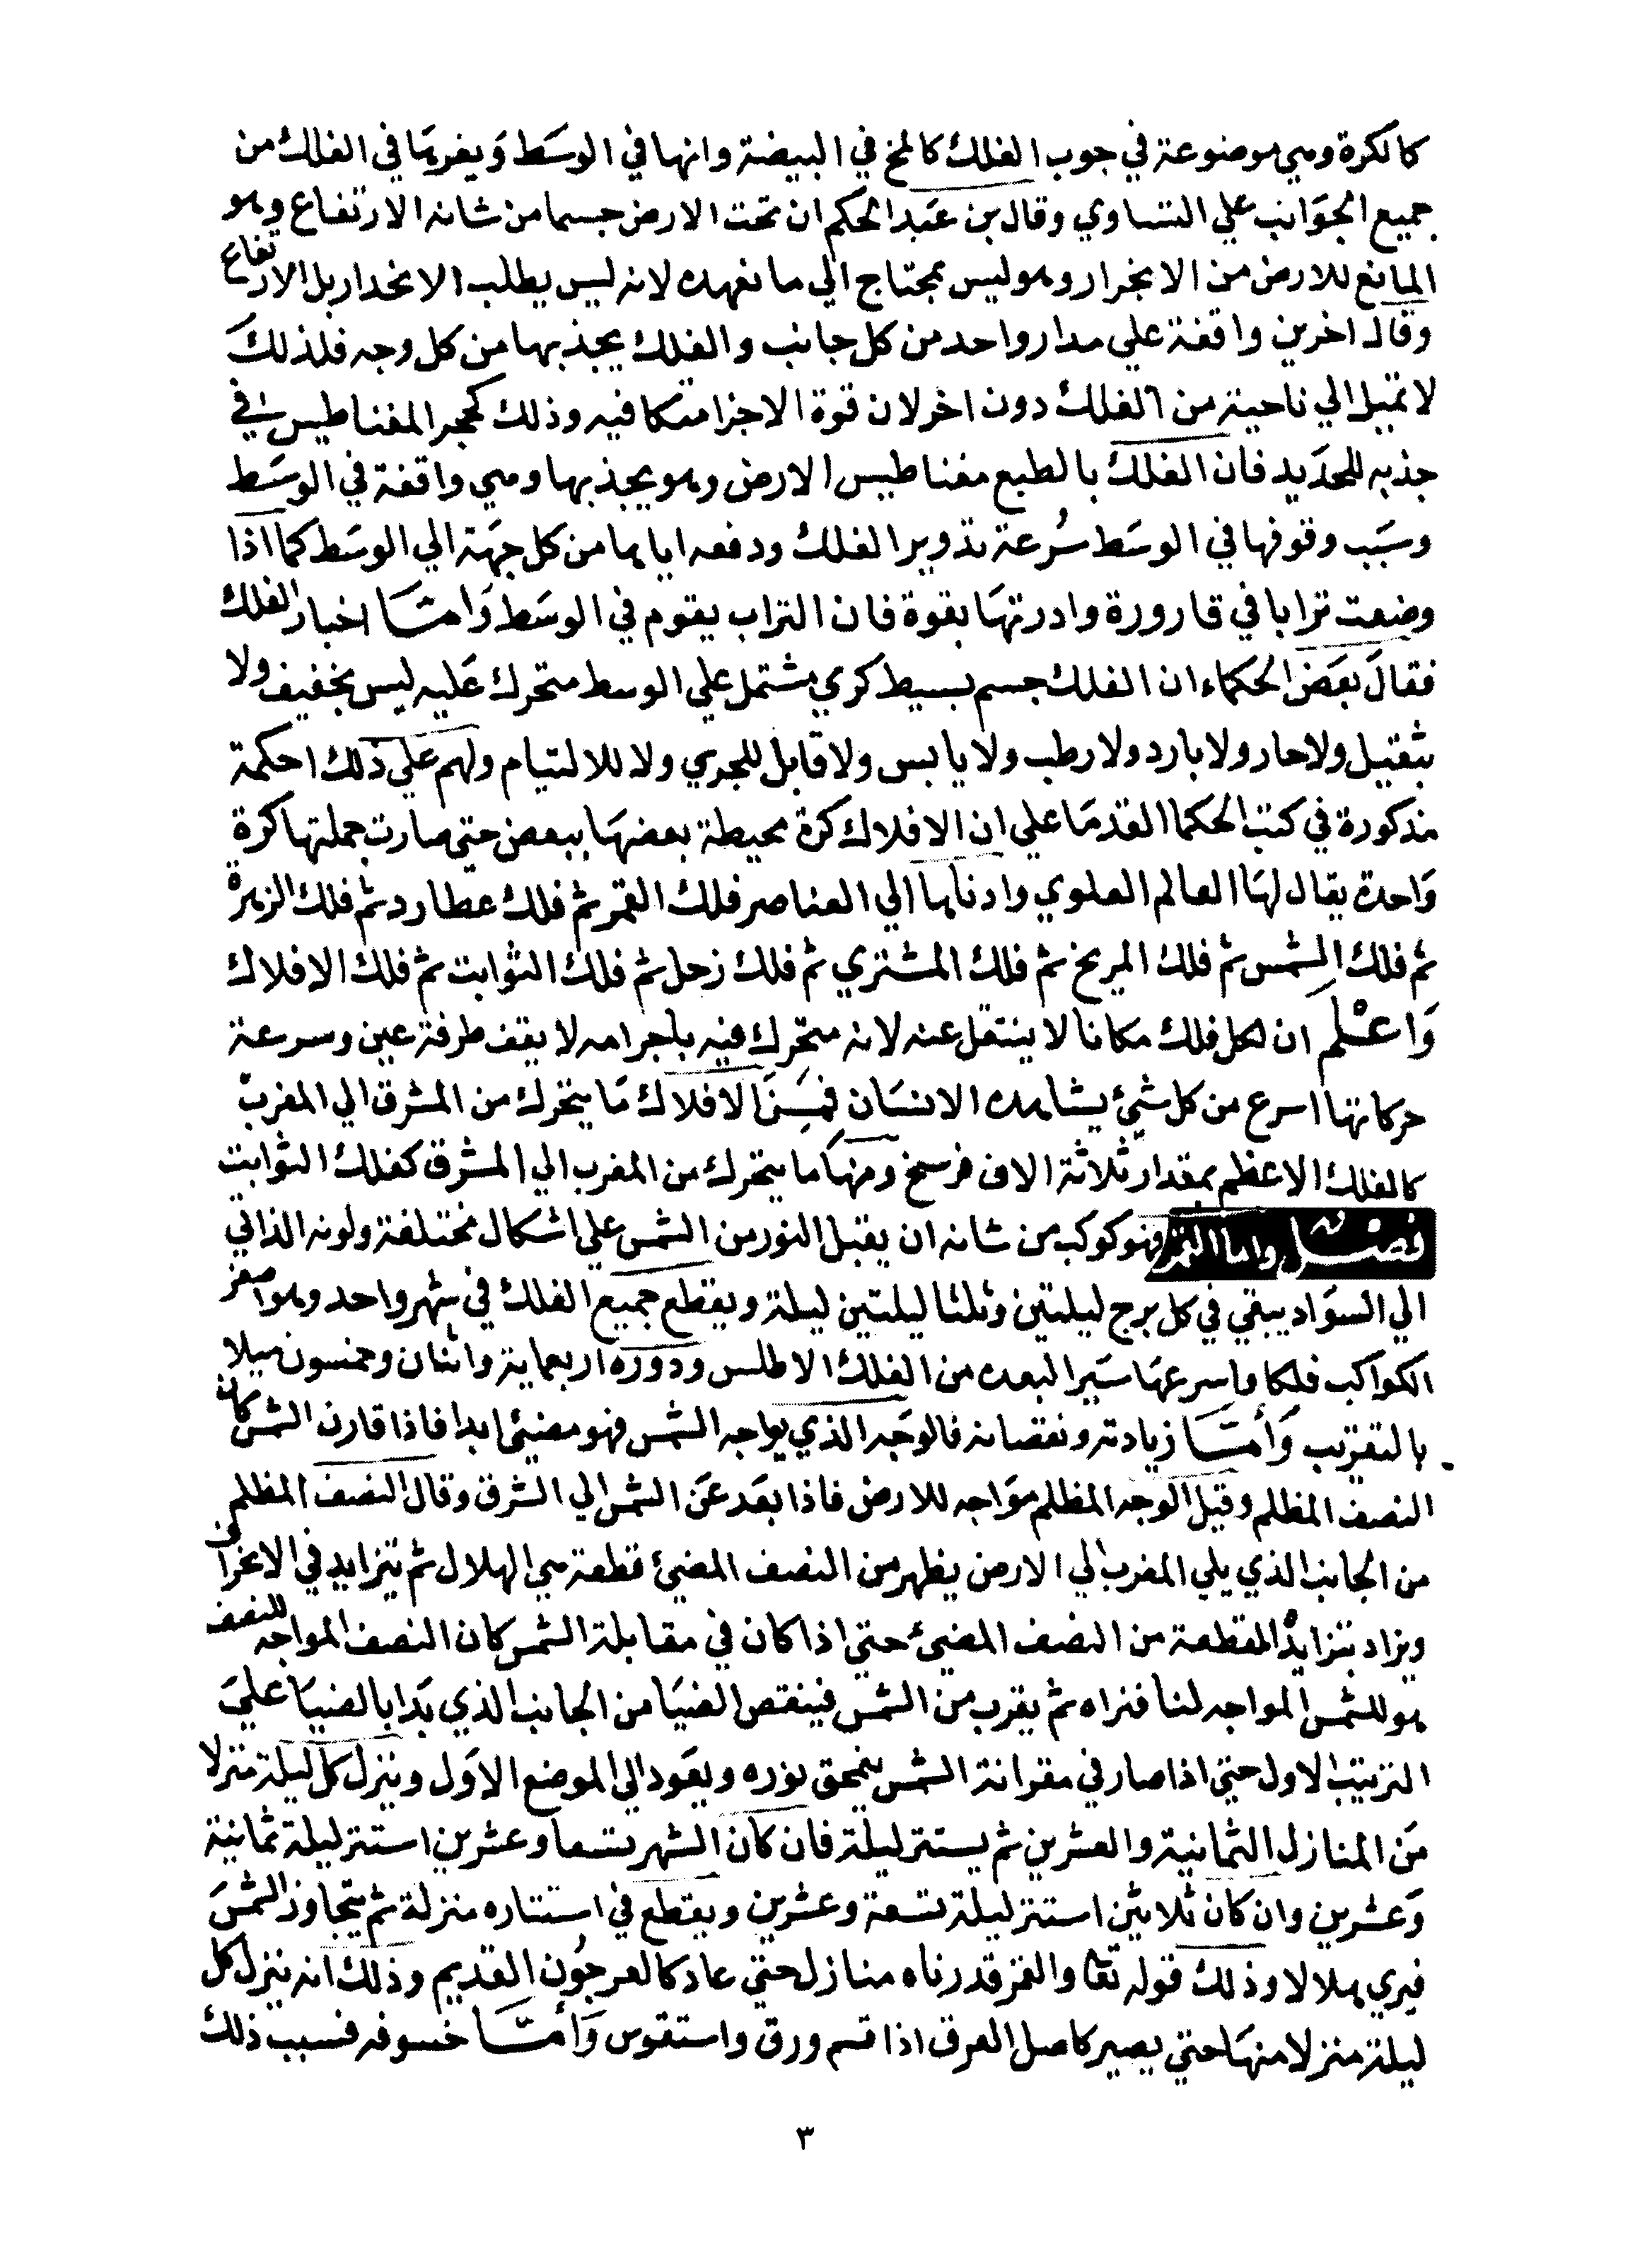 كالكرة وهي موضوعة في جوب الفلك كالمخ في البيضة وانها في الوسط وبعدها في الفلك من
جميع الجوانب علي التساوي وقال بن عبد الحكم ان تحت الارض جسما من شانه الارتفاع وهو
المانع للارض من الانحرار وهو ليس بمحتاج الي ما نعهده لانه ليس يطلب الانحدار بل الارتفاع
وقال اخرين واقفة علي مدار واحد من كل جانب والفلك يجذبها من كل وجه فلذلك
لا تميل الي ناحية من الفلك دون اخر لان قوة الاجزا متكافيه وذلك كحجر المغناطيس في
جذبه للحديد فان الفلك بالطبع مغناطيس الارض وهو يجذبها وهي واقفة في الوسط
وسبب وقوفها في الوسط سرعة تدوير الفلك ودفعه اياها من كل جهة الي الوسط كما اذا
وضعت ترابا في قارورة وادرتها بقوة فان التراب يقوم في الوسط وامتا اخبار الفلك
فقال بعض الحكماء ان الفلك جسم بسيط كري مشتمل علي الوسط متحرك عليه ليس بخفيف ولا
بثقيل ولا حار ولا بارد ولا رطب ولا يابس ولا قابل للجري ولا للالتيام ولهم علي ذلك احكمة
مذكورة في كتب الحكما القدما علي ان الافلاك كرة محيطة بعضها ببعض حتي صارت جملتها كرة
واحدة يقال لها العالم العلوي وادناها الي العناصر فلك القمر ثم فلك عطارد ثم فلك الزهرة
ثم فلك الشمس ثم فلك المريخ ثم فلك المشتري ثم فلك زحل ثم فلك الثوابت ثم فلك الافلاك
واعلم ان لكل فلك مكانا لا ينتقل عنه لانه متحرك فيه باجرامه لا يقف طرفة عين وسرعة
حركاتها اسرع من كل شيئ يشاهده الانسان فمن الافلاك ما يتحرك من المشرق الي المغرب
كالفلك الاعظم بمقدار ثلاثة الاف فرسخ ومنها ما يتحرك من المغرب الي المشرق كفلك الثوابت
فصل واما القمر فهو كوكب من شانه ان يقبل النور من الشمس علي اشكال مختلفة ولونه الذاتي
الي السواد يبقي في كل برج ليلتين وثلثا ليلتين ليلة ويقطع جميع الفلك في شهر واحد وهو اصغر
الكواكب فلكا واسرعها سيرا لبعده من الفلك الاطلس ودوره اربعماية واثنان وخمسون ميلا
بالتقريب وأمتا زيادته ونقصانه فالوجه الذي يواجه الشمس فهو مضيئ ابدا فاذا قارن الشمس كان
النصف المظلم وقيل الوجه المظلم مواجه للارض فاذا بعد عن الشمس الي الشرق وقال النصف المظلم
من الجانب الذي يلي المغرب الي الارض يظهر من النصف المضيئ قطعة هي الهلال ثم يتزايد في الانحراف
ويزاد بتزايد القطعة من النصف المضيئ حتي اذا كان في مقابلة الشمس كان النصف المواجه للنصف
هو للشمس المواجه لنا فنراه ثم يقرب من الشمس فينقص الضيا من الجانب الذي بدا بالضيا علي
الترتيب الاول حتي اذا صار في مقرانة الشمس ينمحق نوره ويعود الي الموضع الاول وينزل كل ليلة منزلا
من المنازل الثمانية والعشرين ثم يستتر ليلة فان كان الشهر تسعا وعشرين استتر ليلة ثمانية
وعشرين وان كان ثلاثين استتر ليلة تسعة وعشرين ويقطع في استتاره منزلة ثم يتجاوز الشمس
فيري هلالا وذلك قوله تعا والقمر قدرناه منازل حتي عاد كالعرجون القديم وذلك انه ينزل كل
ليلة منزلا منها حتي يصير كاصل العرق اذا قسم ورق واستقوس وأمتا خسوفه فسبب ذلك
٣